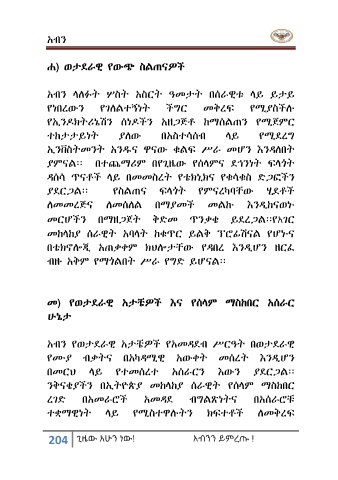 አብን
ሐ) ወታደራዊ የውጭ ስልጠናዎች
አብን ላለፉት ሦስት አስርት ዓመታት በሰራዊቱ ላይ ይታይ
የነበረውን የገለልተኝነት ችግር መቅረፍ የሚያስችሉ
የኢንዶክትሪኔሽን ሰነዶችን አዘጋጅቶ ከማሰልጠን የሚጀምር
ተከታታይነት ያለው በአስተሳሰብ ላይ የሚደረግ
ኢንቨስትመንት አንዱና ዋናው ቁልፍ ሥራ መሆን እንዳለበት
ያምናል። በተጨማሪም በየጊዜው የሰላምና ደኅንነት ፍላጎት
ዳሰሳ ጥናቶች ላይ በመመስረት የቴክኒክና የቁሳቁስ ድጋፎችን
ያደርጋል። የስልጠና ፍላጎት የምናረካባቸው ሂደቶች
ለመመረጅና ለመሰለል በማያመች መልኩ እንዲከናወኑ
መርሆችን በማዘጋጀት ቅድመ ጥንቃቄ ይደረጋል።የአገር
መከላከያ ሰራዊት አባላት ከቁጥር ይልቅ ፕሮፌሽናል የሆኑና
በቴክኖሎጂ አጠቃቀም ክህሎታቸው የዳበረ እንዲሆን ዘርፈ
ብዙ አቅም የማጎልበት ሥራ የግድ ይሆናል።
መ) የወታደራዊ እታቼዎች እና የሰላም ማስከበር አሰራር
ሁኔታ
አብን የወታደራዊ አታቼዎች የአመዳደብ ሥርዓት በወታደራዊ
የሙያ ብቃትና በአካዳሚዊ እውቀት መሰረት እንዲሆን
በመርህ ላይ የተመሰረተ አሰራርን እውን ያደርጋል።
ንቅናቄያችን በኢትዮጵያ መከላከያ ሰራዊት የሰላም ማስከበር
ረገድ በአመራሮች አመዳደ ብግልጽነትና በአሰራሮቹ
ተቋማዊነት ላይ የሚስተዋሉትን ክፍተቶች ለመቅረፍ
204 ጊዜው አሁን ነው! አብንን ይምረጡ !